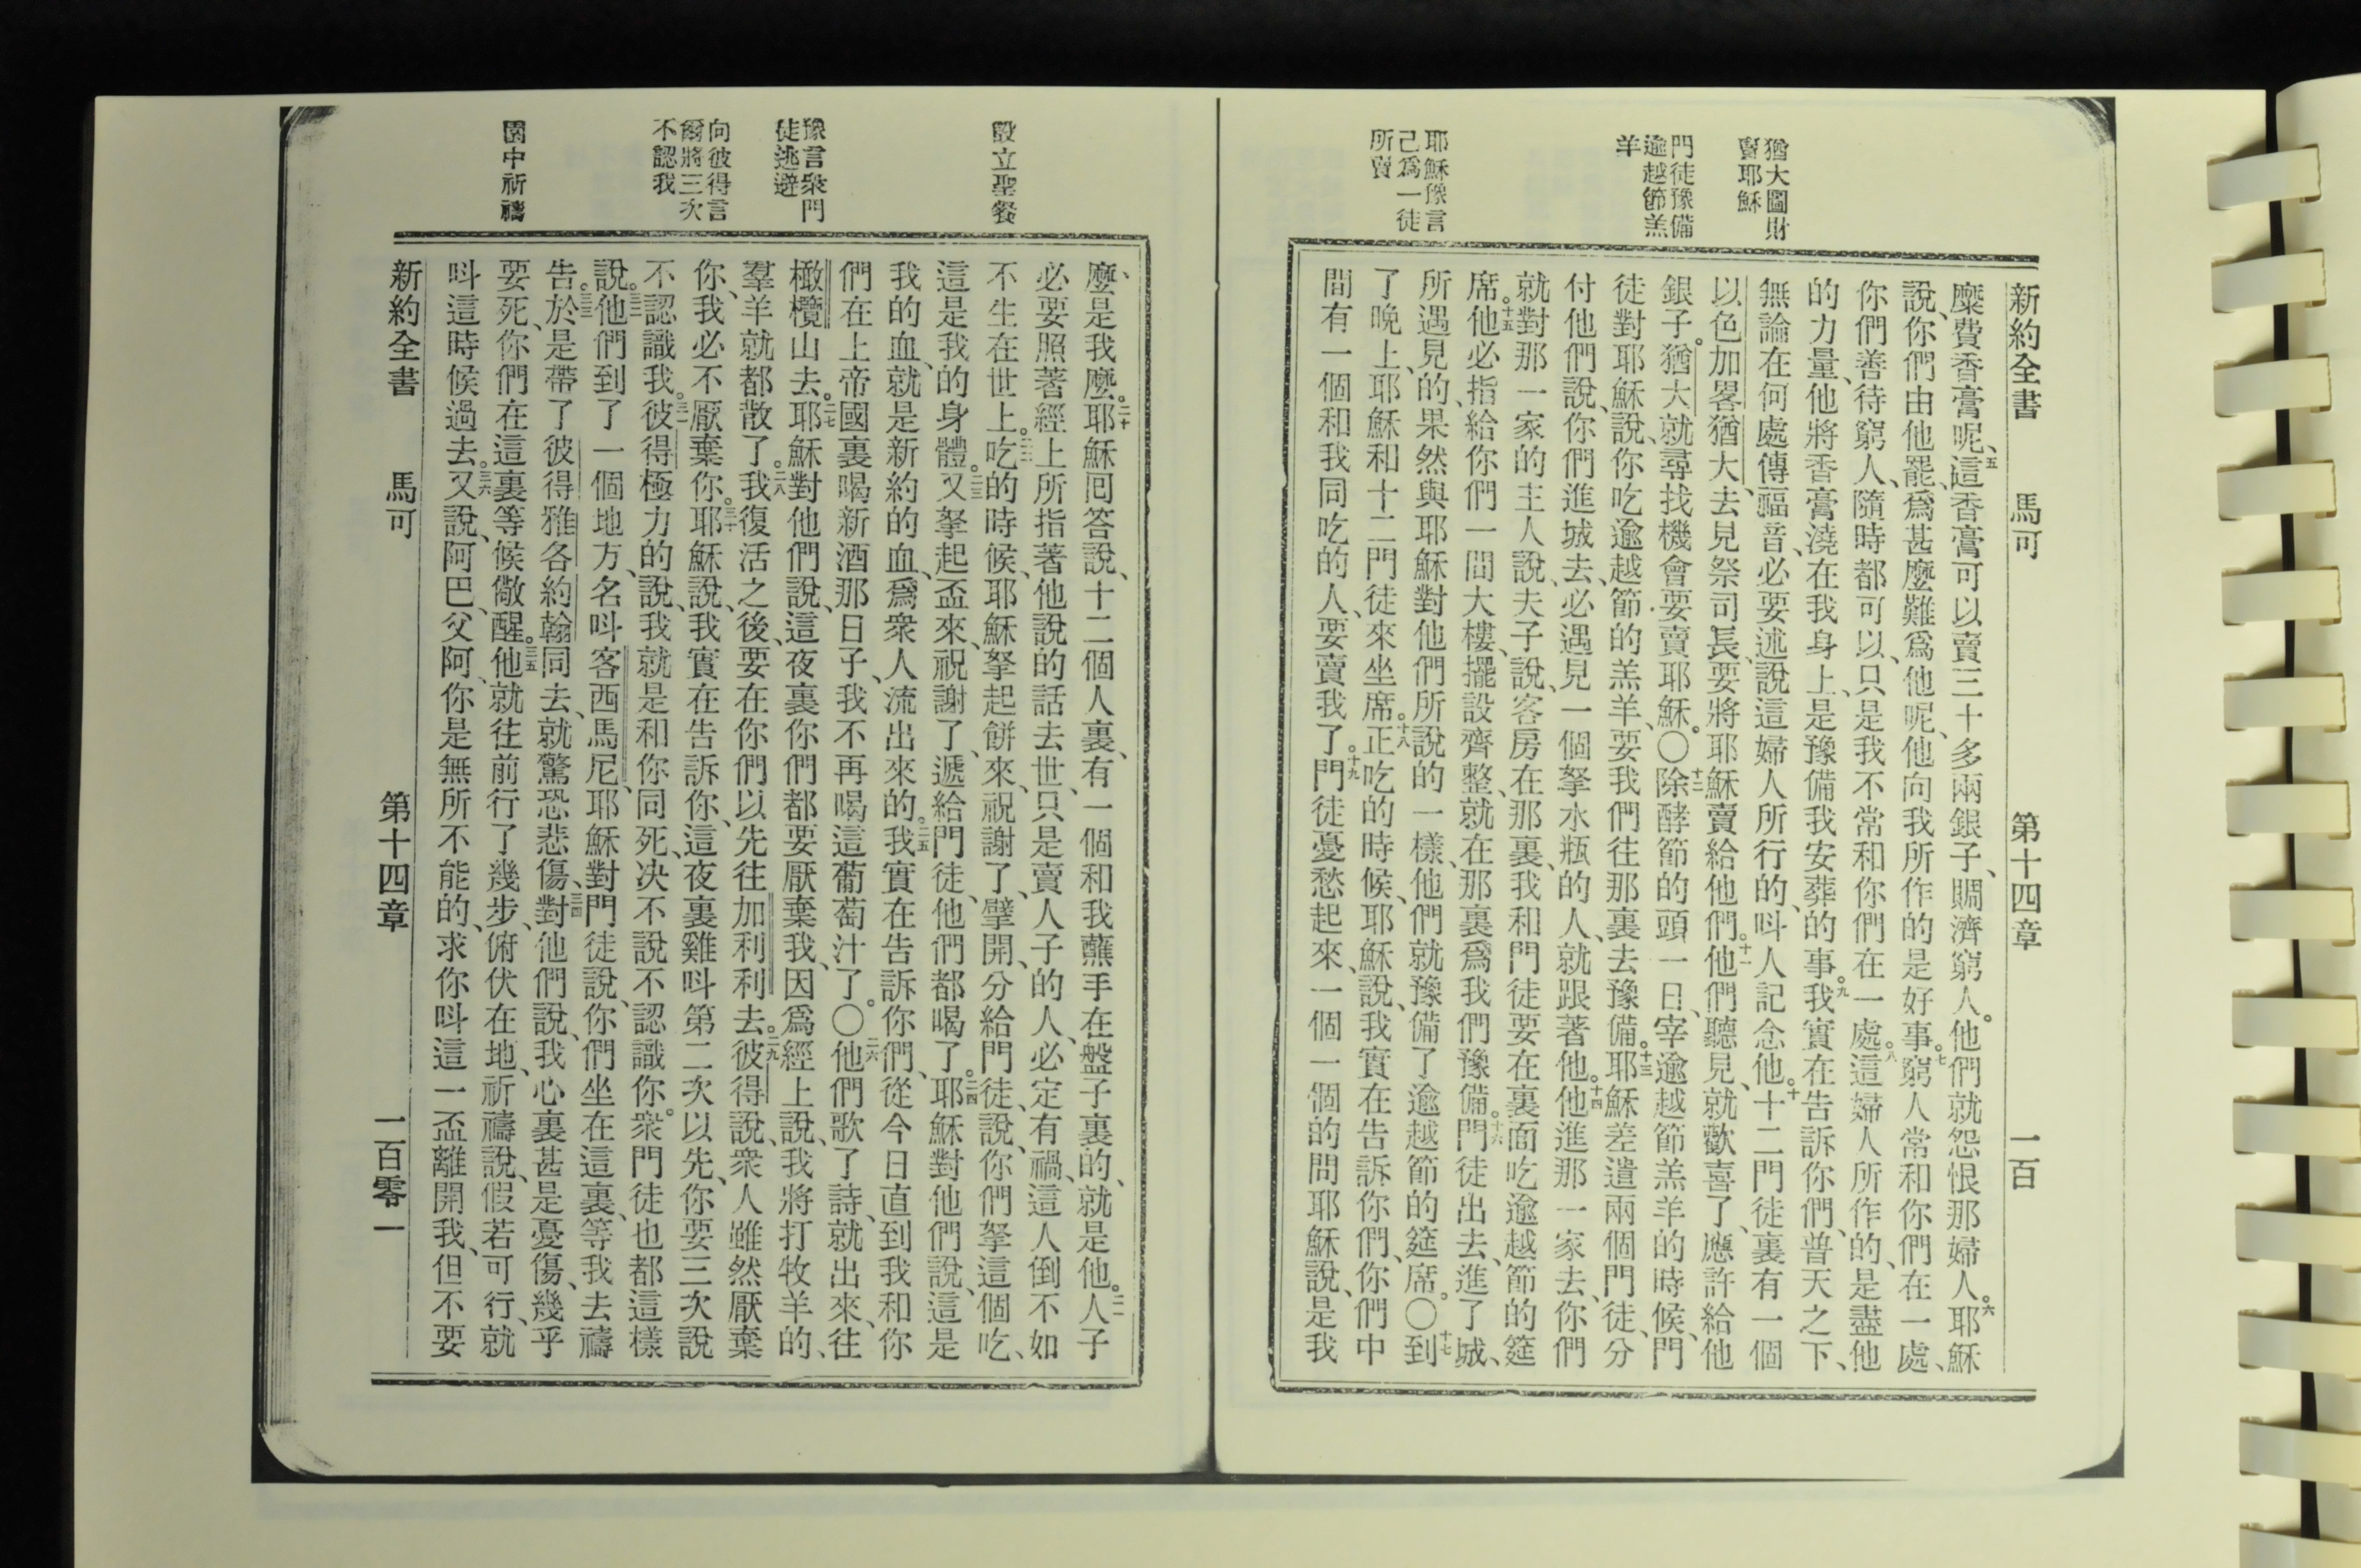 猶大圖財
賣耶穌
門徒豫備
逾越節羔
羊
耶穌豫言
己爲一徒
所賣
新約全書 馬可 第十四章 一百
糜費香膏呢、五這香膏可以賣三十多兩銀子、賙濟窮人。他們就怨恨那婦人。六耶穌
說、你們由他罷、爲甚麼難爲他呢、他向我所作的是好事。七窮人常和你們在一處、
你們善待窮人、隨時都可以、只是我不常和你們在一處。八這婦人所作的、是盡他
的力量、他將香膏澆在我身上、是豫備我安葬的事。九我實在告訴你們、普天之下、
無論在何處傳福音、必要述說這婦人所行的、呌人記念他。十十二門徒裏有一個
以色加畧猶大、去見祭司長、要將耶穌賣給他們。十一他們聽見、就歡喜了、應許給他
銀子。猶大就尋找機會要賣耶穌。〇十二除酵節的頭一日、宰逾越節羔羊的時候、門
徒對耶穌說、你吃逾越節的羔羊、要我們往那裏去豫備。十三耶穌差遣兩個門徒、分
付他們說、你們進城去、必遇見一個拏水瓶的人、就跟著他。十四他進那一家去、你們
就對那一家的主人說、夫子說、客房在那裏、我和門徒要在裏面吃逾越節的筵
席。十五他必指給你們一間大樓、擺設齊整、就在那裏爲我們豫備。十六門徒出去、進了城、
所遇見的、果然與耶穌對他們所說的一樣、他們就豫備了逾越節的筵席。〇十七到
了晚上、耶穌和十二門徒來坐席。十八正吃的時候、耶穌說、我實在告訴你們、你們中
間有一個和我同吃的人、要賣我了。十九門徒憂愁起來、一個一個的問耶穌說、是我
設立聖餐
豫言衆門
徒逃避
向彼得言
爾將三次
不認我
園中祈禱
麼、是我麼。二十耶穌囘答說、十二個人裏、有一個和我蘸手在盤子裏的、就是他。二一人子
必要照著經上所指著他說的話去世、只是賣人子的人、必定有禍、這人倒不如
不生在世上。二二吃的時候、耶穌拏起餅來、祝謝了、擘開、分給門徒、說、你們拏這個吃、
這是我的身體。二三又拏起盃來、祝謝了、遞給門徒、他們都喝了。二四耶穌對他們說、這是
我的血、就是新約的血、爲衆人流出來的。二五我實在告訴你們、從今日直到我和你
們在上帝國裏喝新酒那日子、我不再喝這葡萄汁了。〇二六他們歌了詩、就出來、往
橄欖山去。二七耶穌對他們說、這夜裏你們都要厭棄我、因爲經上說、我將打牧羊的、
羣羊就都散了。二八我復活之後、要在你們以先往加利利去。二九彼得說、衆人雖然厭棄
你、我必不厭棄你。三十耶穌說、我實在告訴你、這夜裏雞呌第二次以先、你要三次說
不認識我。三一彼得極力的說、我就是和你同死、决不說不認識你。衆門徒也都這樣
說。三二他們到了一個地方、名呌客西馬尼、耶穌對門徒說、你們坐在這裏、等我去禱
告。三三於是帶了彼得雅各約翰同去、就驚恐悲傷、三四對他們說、我心裏甚是憂傷、幾乎
要死、你們在這裏等候儆醒。三五他就往前行了幾步、俯伏在地、祈禱說、假若可行、就
呌這時候過去。三六又說、阿巴、父阿、你是無所不能的、求你呌這一盃離開我、但不要
新約全書 馬可 第十四章 一百零一